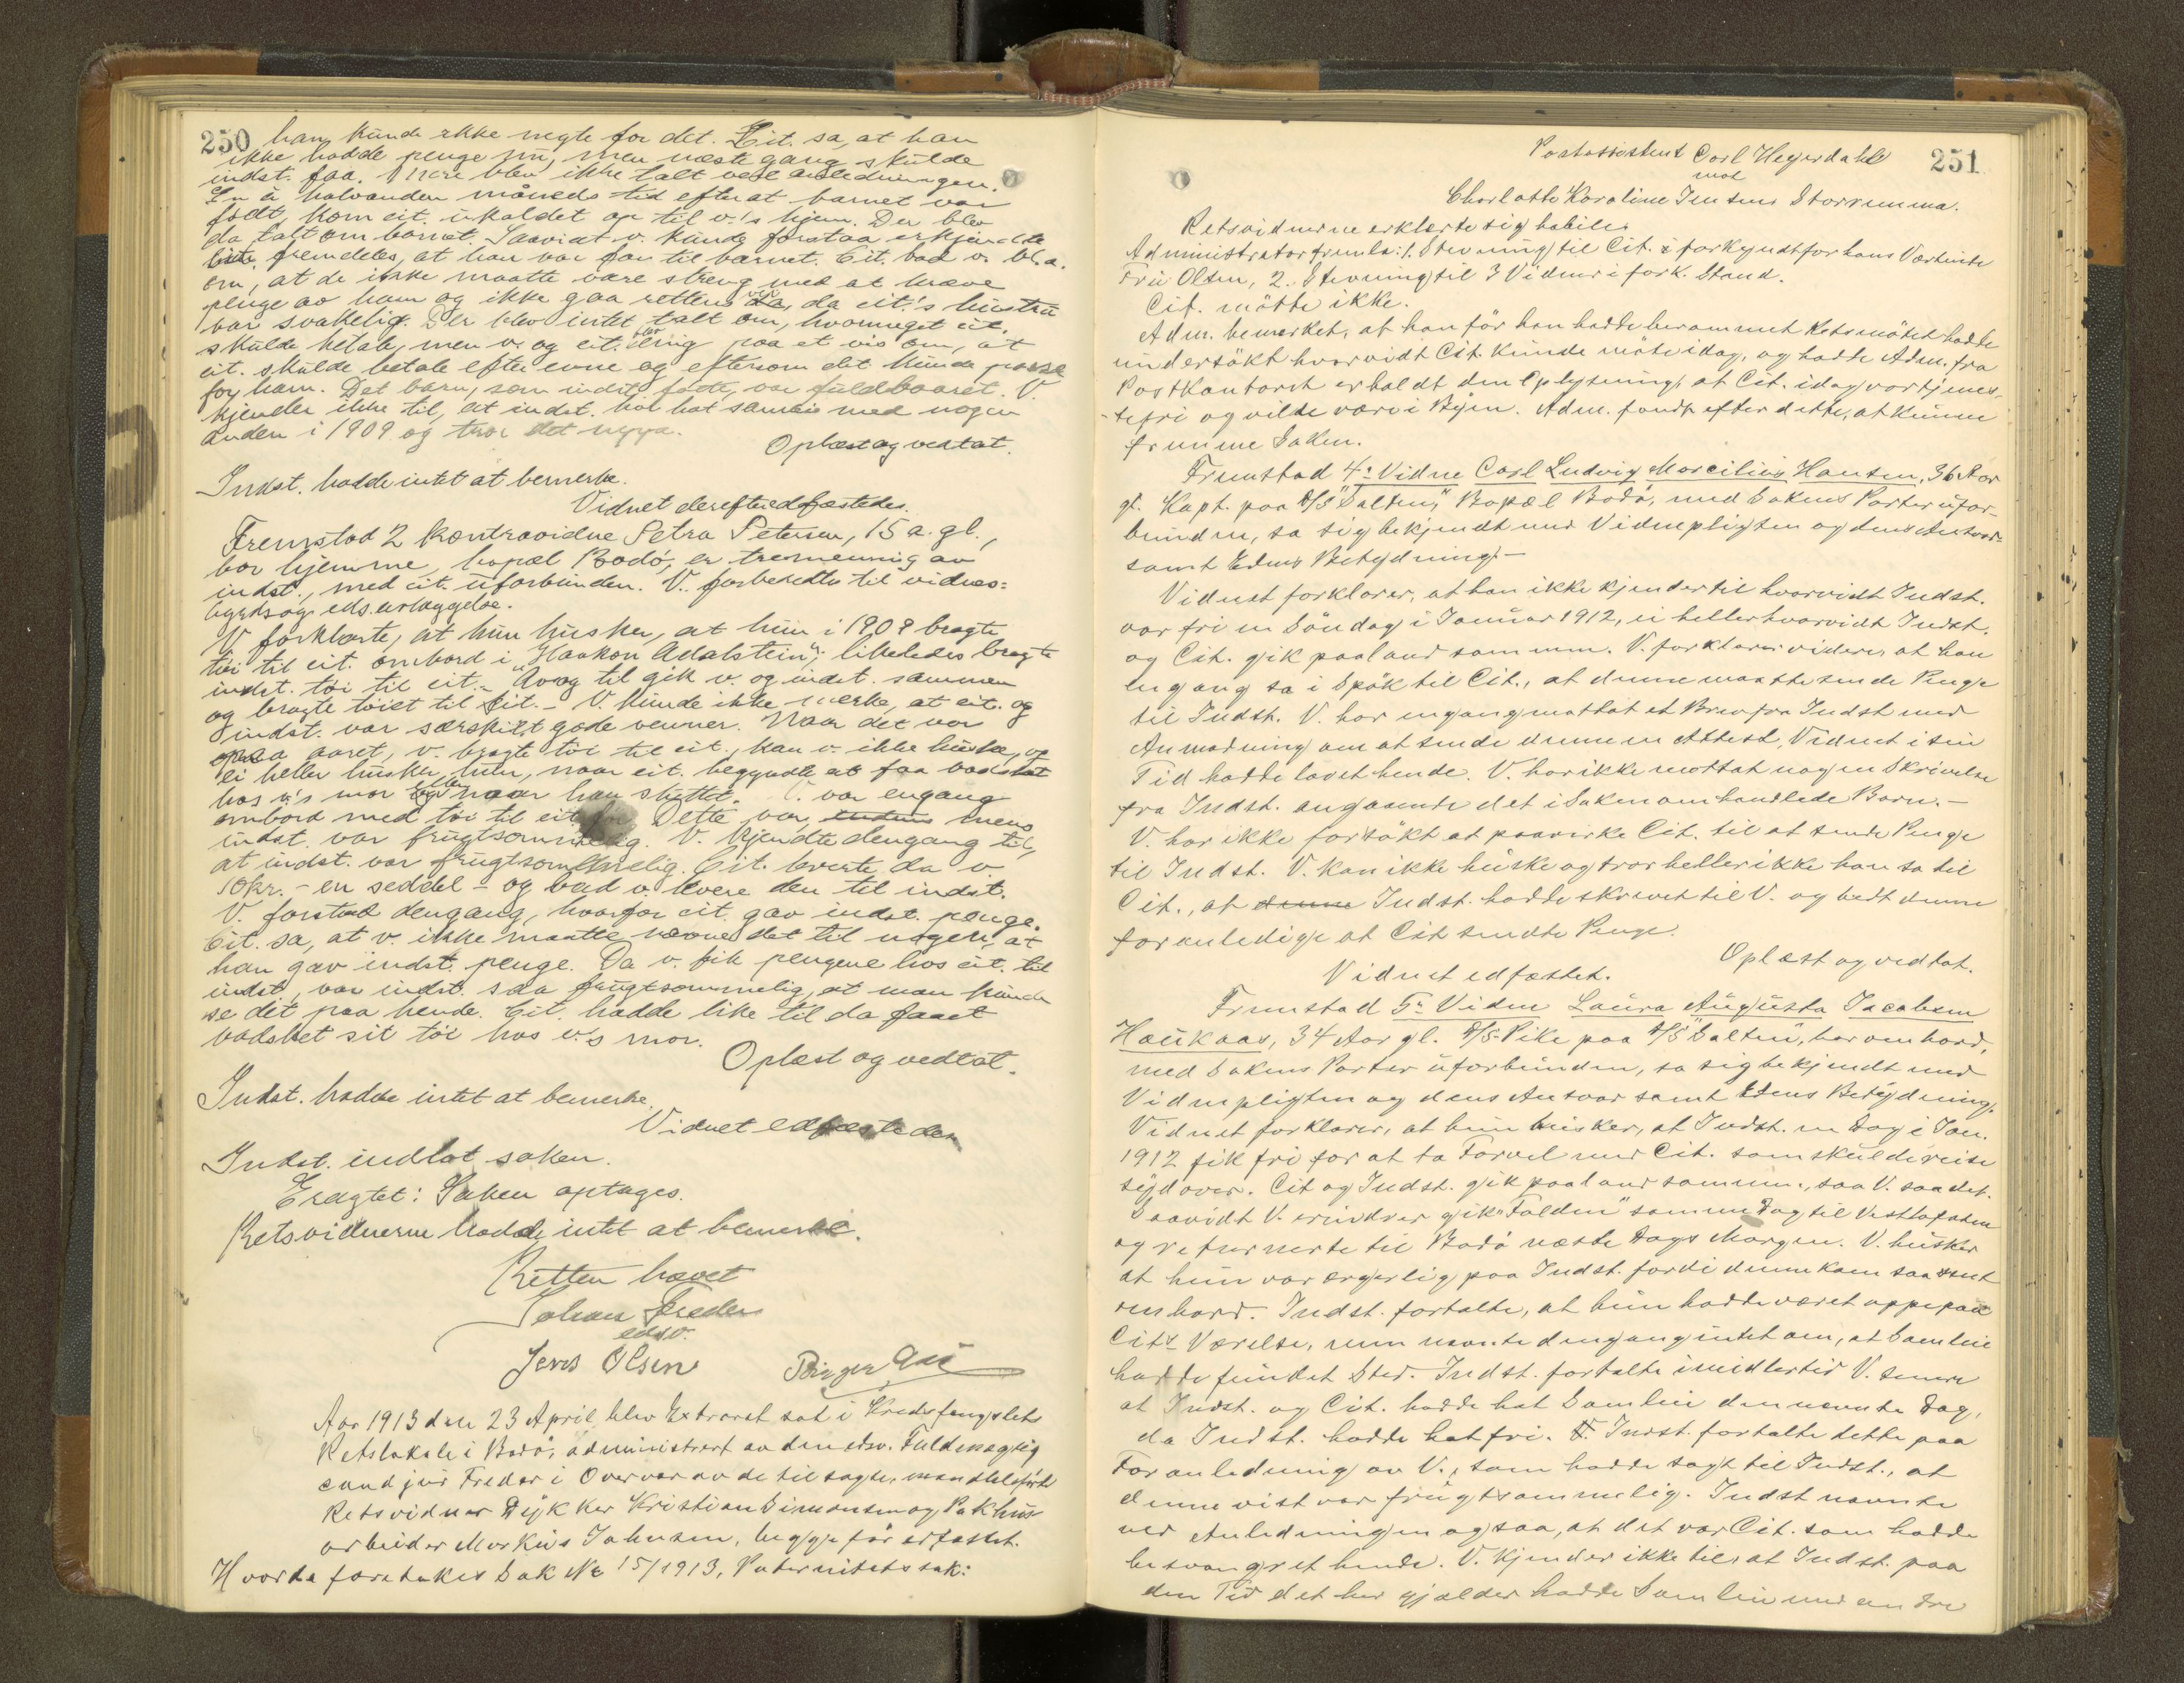 250
han kunde ikke negte for det. Cit. sa, at han
ikke hadde penge nu, men næste gang skulde
indst. faa. Mere blev ikke talt ved anledningen.
En à halvanden måneds tid efterat barnet var
født, kom cit. ukaldet op til v.'s hjem. Der blev
da talt om barnet. Saavidt v. kunde forstaa erkjendte
cit. fremdeles, at han var far til barnet. Cit. bad v. bl.a.
om, at de ikke maatte være streng med at kræve
penge av ham og ikke gaa rettens vei, da cit.'s hustru
var svakelig. Der blev intet talt om, hvormeget cit.
skulde betale, men v. og cit. blev enig paa et vis om, at
cit. skulde betale efter evne og eftersom det kunde passe
for ham. Det barn, som indst. fødte, var fuldbaaret. V.
kjender ikke til, at indst. har hat samleie med nogen
anden i 1909 og tror det neppe.
Oplæst og vedtat.
Indst. hadde intet at bemerke.
Vidnet derefter edfæstedes.
Fremstod 2 kontravidne Petra Petersen, 15 a. gl.,
bor hjemme, bopæl Bodö, er tremenning av
indst., med cit. uforbunden. V. forberedtes til vidnes=
byrds og eds avlæggelse.
V. forklarte, at hun husker, at hun i 1909 bragte
töi til cit. ombord i "Haakon Adalstein"; likeledes bragte
indst. töi til cit. Av og til gik v. og indst. sammen
og bragte töiet til cit. - V. kunde ikke merke, at cit. og
indst. var særskilt gode venner. Naar det var
paa aaret, v. bragte töi til cit., kan v. ikke huske, og
ei heller husker hun, naar cit. begyndte at faa vasket
hos v.'s mor eller naar han sluttet. V. var engang
ombord med töi til cit. Dette var mens
indst. var frugtsommelig. V. kjendte dengang til,
at indst. var frugtsommelig. Cit. leverte da v.
10 kr. - en seddel - og bad v. levere den til indst.
V. forstod dengang, hvorfor cit. gav indst. penge.
Cit. sa, at v. ikke maatte nævne det til nogen, at
han gav indst. penge. Da v. fik pengene hos cit. til
indst., var indst. saa frugtsommelig, at man kunde
se det paa hende. Cit. hadde like til da faaet
vasket sit töi hos v.'s mor.
Oplæst og vedtat.
Indst. hadde intet at bemerke.
Vidnet edfæstedes
Indst. indlot saken.
Eragtet: Saken optages.
Retsvidnerne hadde intet at bemerke.
Retten hævet
Johan Freder
edsv.
Jens Olsen Birger
Aar 1913 den 23 April blev Extraret sat i Kredsfængslets
Retslokale i Bodö, administrert av den edsv. Fuldmægtig
cand jur Freder i Overvær av de tilsagte, mandtalsförte
Retsvidner Dykker Kristian Simonsen og Pakhus
arbeider Markus Johnsen, begge før edfæstet.
Hvorda foretokes Sak No 15/1913, Paternitetssak:
251
Postassistent Carl Heyerdahl
mot
Charlotte Karoline Jensens Storjumma.
Retsvidnerne erklærte sig habile.
Administrator fremla: 1. Stevning til Cit. forkyndt for hans Værtinde
Fru Olsen, 2. Stevning til 3 Vidner i fork. Stand.
Cit. mötte ikke.
Adm. bemerket, at han för han hadde berammet Retsmötet hadde
undersökt hvorvidt Cit. kunde möte idag, og hadde Adm. fra
Postkontoret erholdt den Oplysning, at Cit. idag var tjenes-
-tefri og vilde være i Byen. Adm. fandt efter dette, at kunne
fremme Saken.
Fremstod 4. Vidne Carl Ludvig Marcilius Hansen, 36 Aar
gl. Kapt. paa D/S "Salten", Bopæl Bodö, med Sakens Parter ufor-
bunden, sa sig bekjendt med Vidnepligten og dens Ansvar
samt Edens Betydning. -
Vidnet forklarer, at han ikke kjender til hvorvidt Indst.
var fri en Söndag i Januar 1912, ei heller hvorvidt Indst.
og Cit. gik paaland sammen. V. forklarer videre, at han
engang sa i Spök til Cit., at denne maatte sende Penge
til Indst. V. har engang mottat et Brev fra Indst. med
Anmodning om at sende denne en Attest, Vidnet i sin
Tid hadde lovet hende. V. har ikke mottat nogen Skrivelse
fra Indst. angaaende det i Saken omhandlede Barn. -
V. har ikke forsökt at paavirke Cit. til at sende Penge
til Indst. V. kan ikke huske og tror heller ikke han sa til
Cit., at denne Indst. hadde skrevet til V. og bedt denne
foranledige at Cit sendte Penge.
Oplæst og vedtat.
Vidnet edfæstet.
Fremstod 5. Vidne Laura Augusta Jacobsen
Haukaas, 34 Aar gl. D/S-Pike paa D/S "Salten", bor ombord,
med Sakens Parter uforbunden, sa sig bekjendt med
Vidnepligten og dens Ansvar samt Edens Betydning.
Vidnet forklarer, at hun husker, at Indst. en Dag i Jan.
1912 fik fri for at ta Farvel med Cit. som skulde reise
sydover. Cit og Indst. gik paaland sammen, saa V. saa det.
Saavidt V. erindrer gik "Folden" samme Dag til Vestlofoten
og returnerte til Bodö næste Dags Morgen. V. husker
at hun var ærgerlig paa Indst. fordi denne kom saa sent
ombord. Indst. fortalte, at hun hadde været oppe paa
Cits Værelse, men nævnte dengang intet om, at Samleie
hadde fundet Sted. Indst. fortalte imidlertid V. senere
at Indst. og Cit. hadde hat Samleie den nævnte Dag,
da Indst. hadde hat fri. Indst. fortalte dette paa
Foranledning av V., som hadde sagt til Indst., at
denne vist var frugtsommelig. Indst nævnte
ved Anledningen ogsaa, at det var Cit. som hadde
besvangret hende. V. kjender ikke til, at Indst. paa
den Tid det her gjælder hadde Samleie med andre